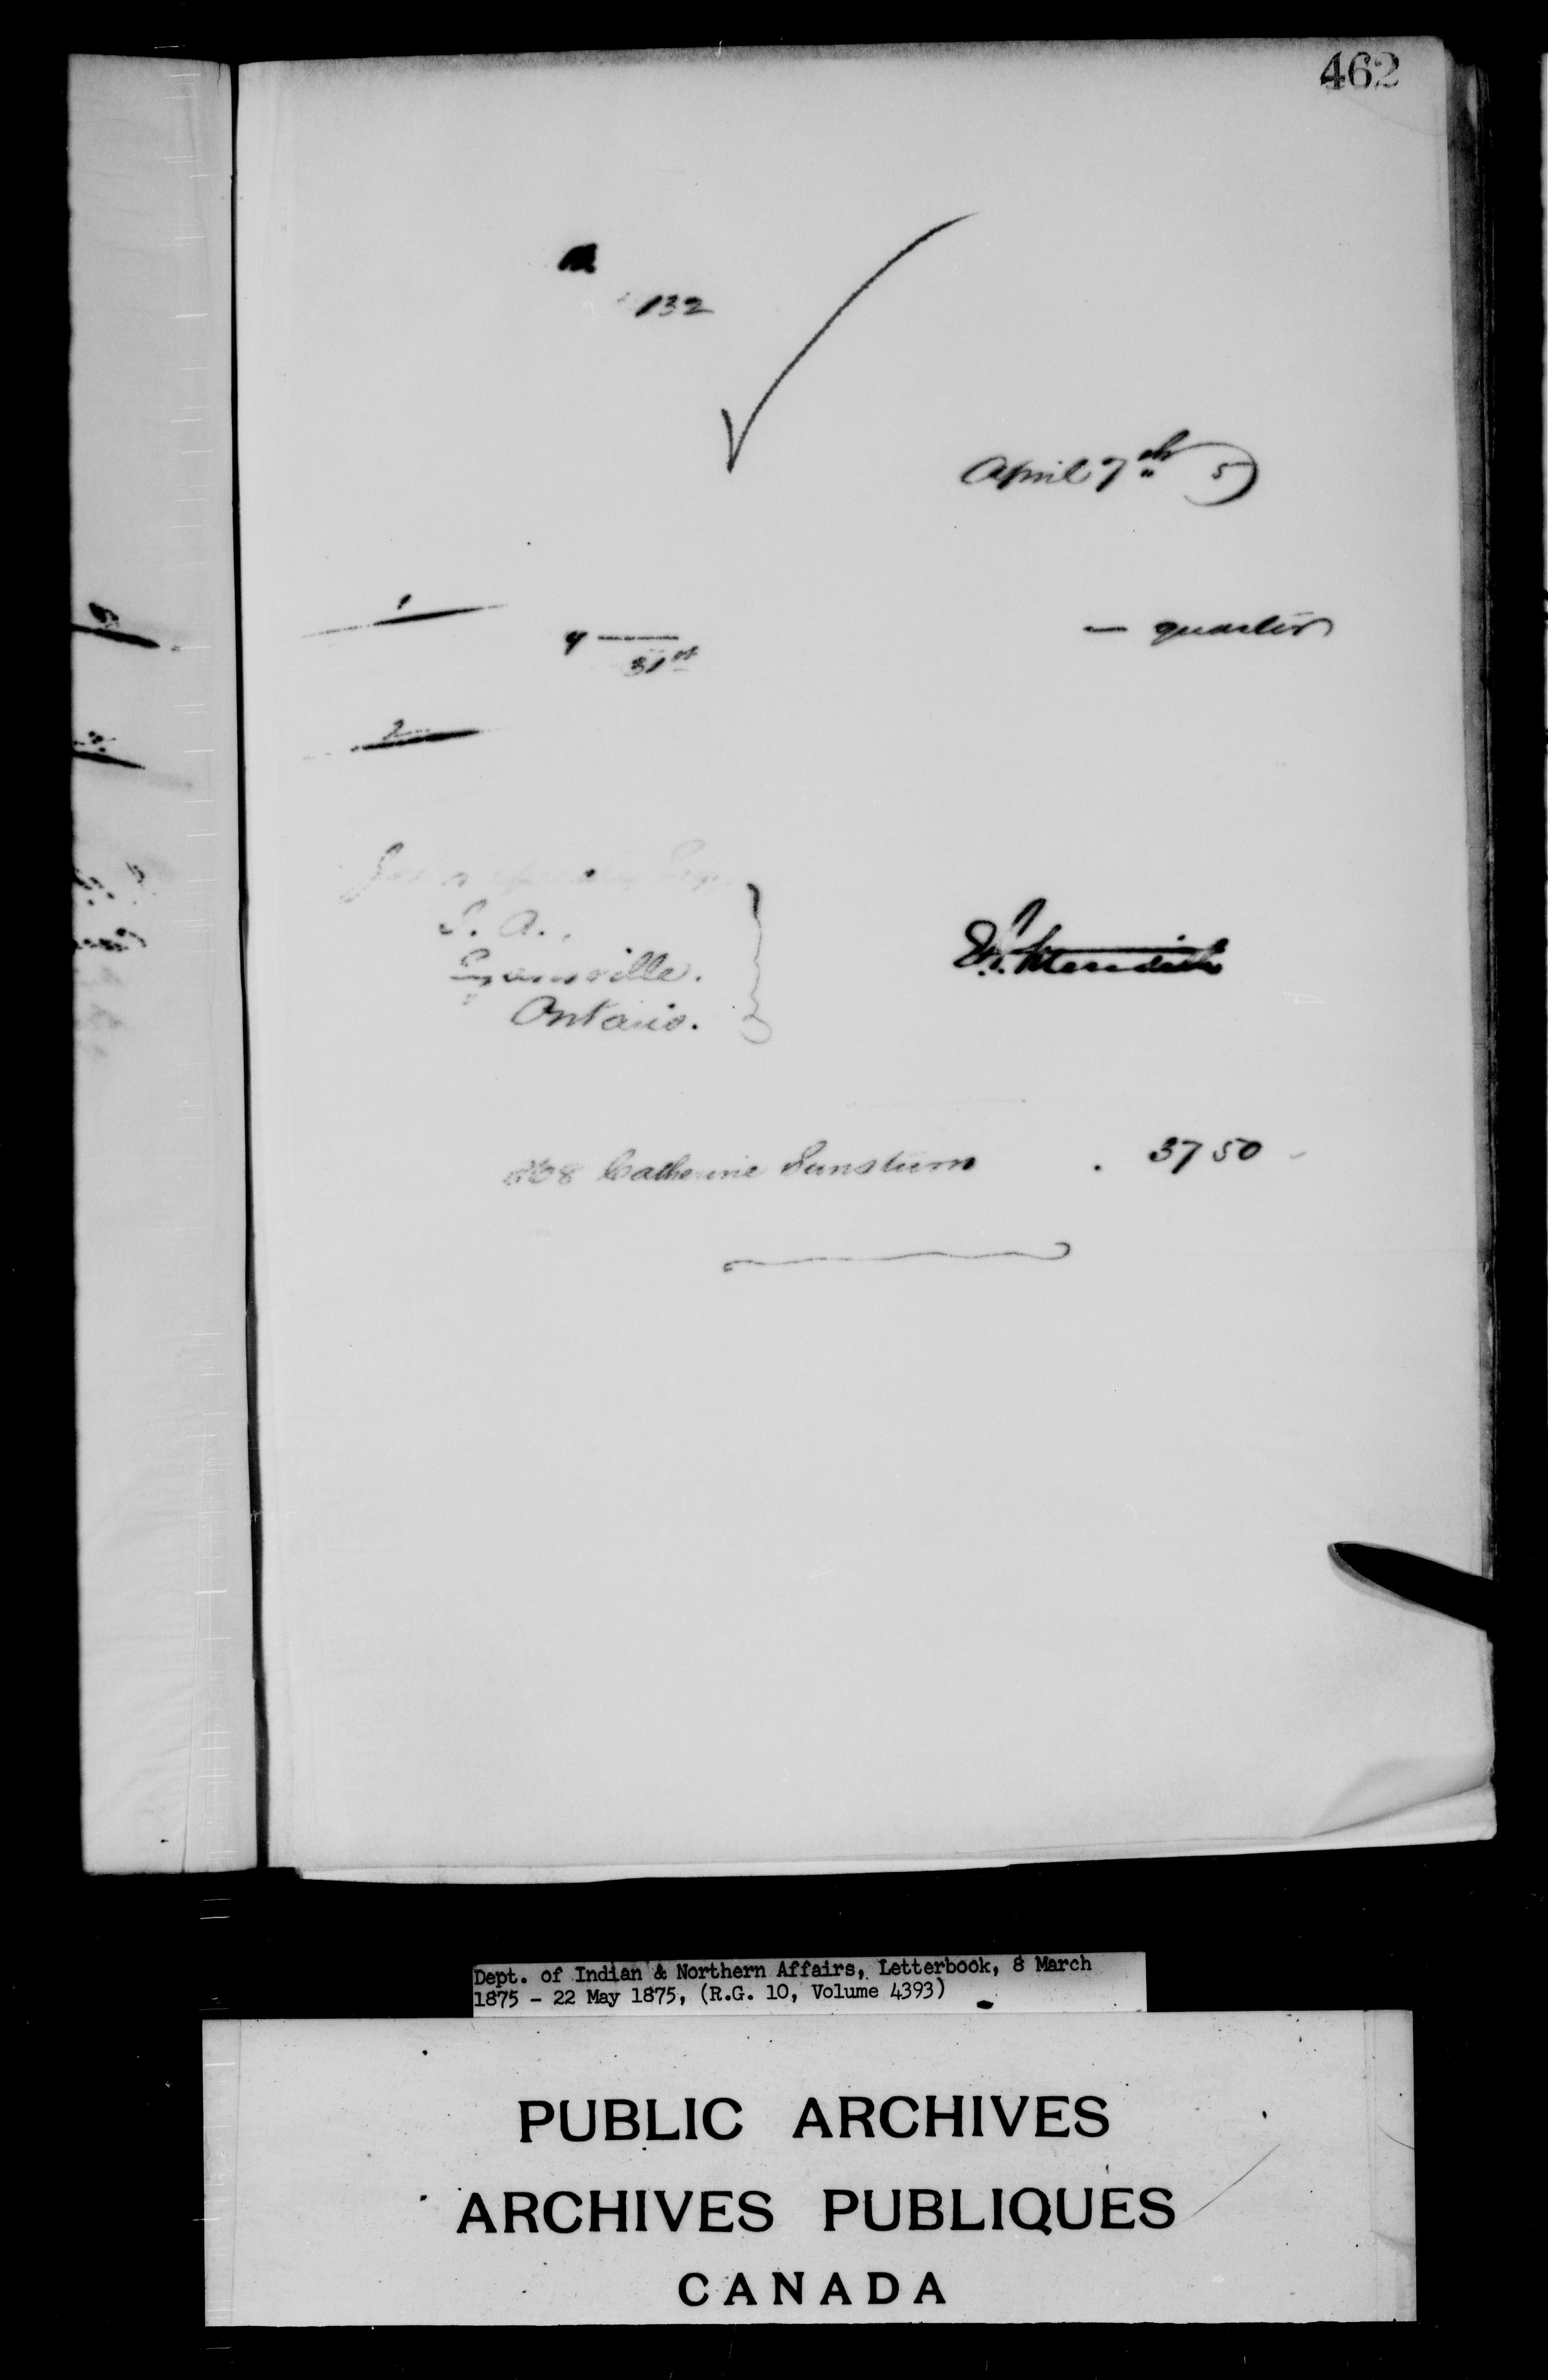 462
132
April 7th 5
1
4 — — quarter
31st
2
S. A.,
Ontario.
E. A. Meredith
Catherine Sunstum . 37 50
Dept. of Indian & Northern Affairs, Letterbook, 8 March
1875 - 22 May 1875, (R.G. 10, Volume 4393)
PUBLIC ARCHIVES
ARCHIVES PUBLIQUES
CANADA